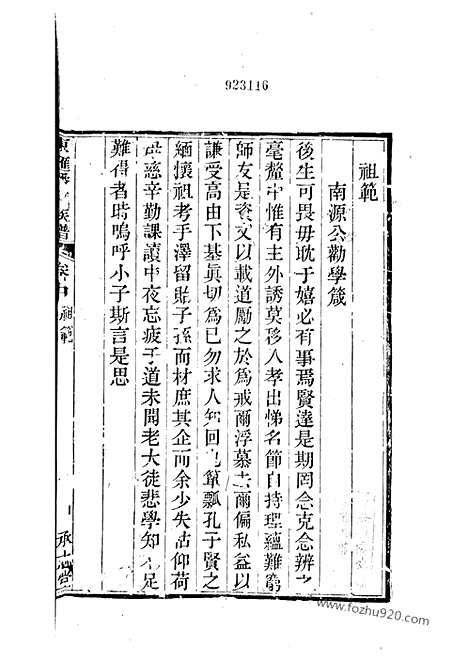 923116
祖範
南源公勸學箴
後生可畏毋耽于嬉必有事焉賢達是期罔念克念辨之
毫釐中惟有主外誘莫移入孝出悌名節自持理蘊難窮
師友是資文以載道勵之於爲戒爾浮慕去爾偏私益以
謙受高由下基眞切爲己勿求人知回也簞瓢孔子賢之
緬懷祖考手澤留貽子孫而材庶其企而余少失怙仰荷
母慈辛勤課讀中夜忘疲予道未聞老大徒悲學知不足
難得者時嗚呼小子斯言是思
族譜
卷
祖範
承
www.fozhu920.com